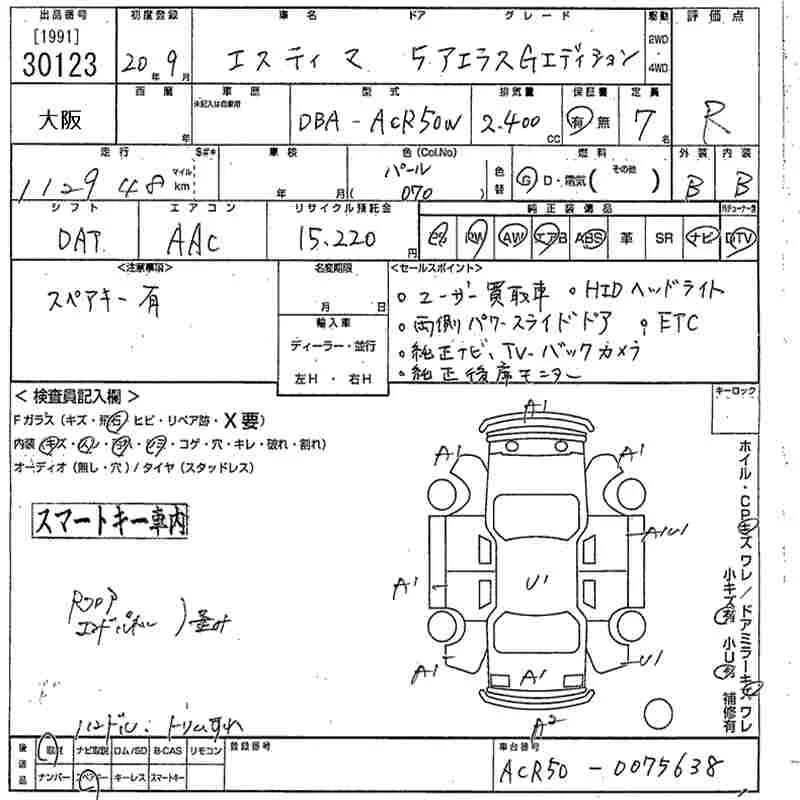 出品番号 初度登録 車名 ドア グレード 駆動 評価点
[1991]
30123 20年 9月 エスティマ 5 アエラスGエディション 2WD・4WD
西暦 車歴 型式 排気量 保証書 定員
未記入は自家用
大阪 年 DBA-ACR50W 2.400cc 有 無 7名 R
走行 S#* 車検 色(Col.No) 燃料 外装 内装
112948 マイル km 年 月 パール (070) 色替 G D・電気(その他) B B
シフト エアコン リサイクル預託金 純正装備品
DAT AAC 15.220円 PS PW AW エアB ABS 革 SR ナビ TV
<注意事項> 名変期限 <セールスポイント>
スペアキー有
月 日
輸入車
ディーラー・並行
左H・右H
。ユーザー買取車 。HIDヘッドライト
。両側パワースライドドア 。ETC
。純正ナビ、TV・バックカメラ
。純正後席モニター
キーロック
<検査員記入欄>
Fガラス(キズ・飛石 ヒビ・リペア跡・X要)
内装(キズ・コゲ・穴・キレ・破れ・割れ)
オーディオ(無し・穴)/タイヤ(スタッドレス)
スマートキー車内
Rフロア
エンドパネル )歪み
A1
A1 A1
A1U1
A1 U1
A1 A1 U1
A2
ホイル・CPキズ ワレ/ドアミラーキズ ワレ
小キズ有 小U有 補修有
トリムすれ
後送品 取説 ナビ取説 ロム/SD B-CAS リモコン 登録番号 車台番号
ナンバー スペアキー キーレス スマートキー ACR50-0075638